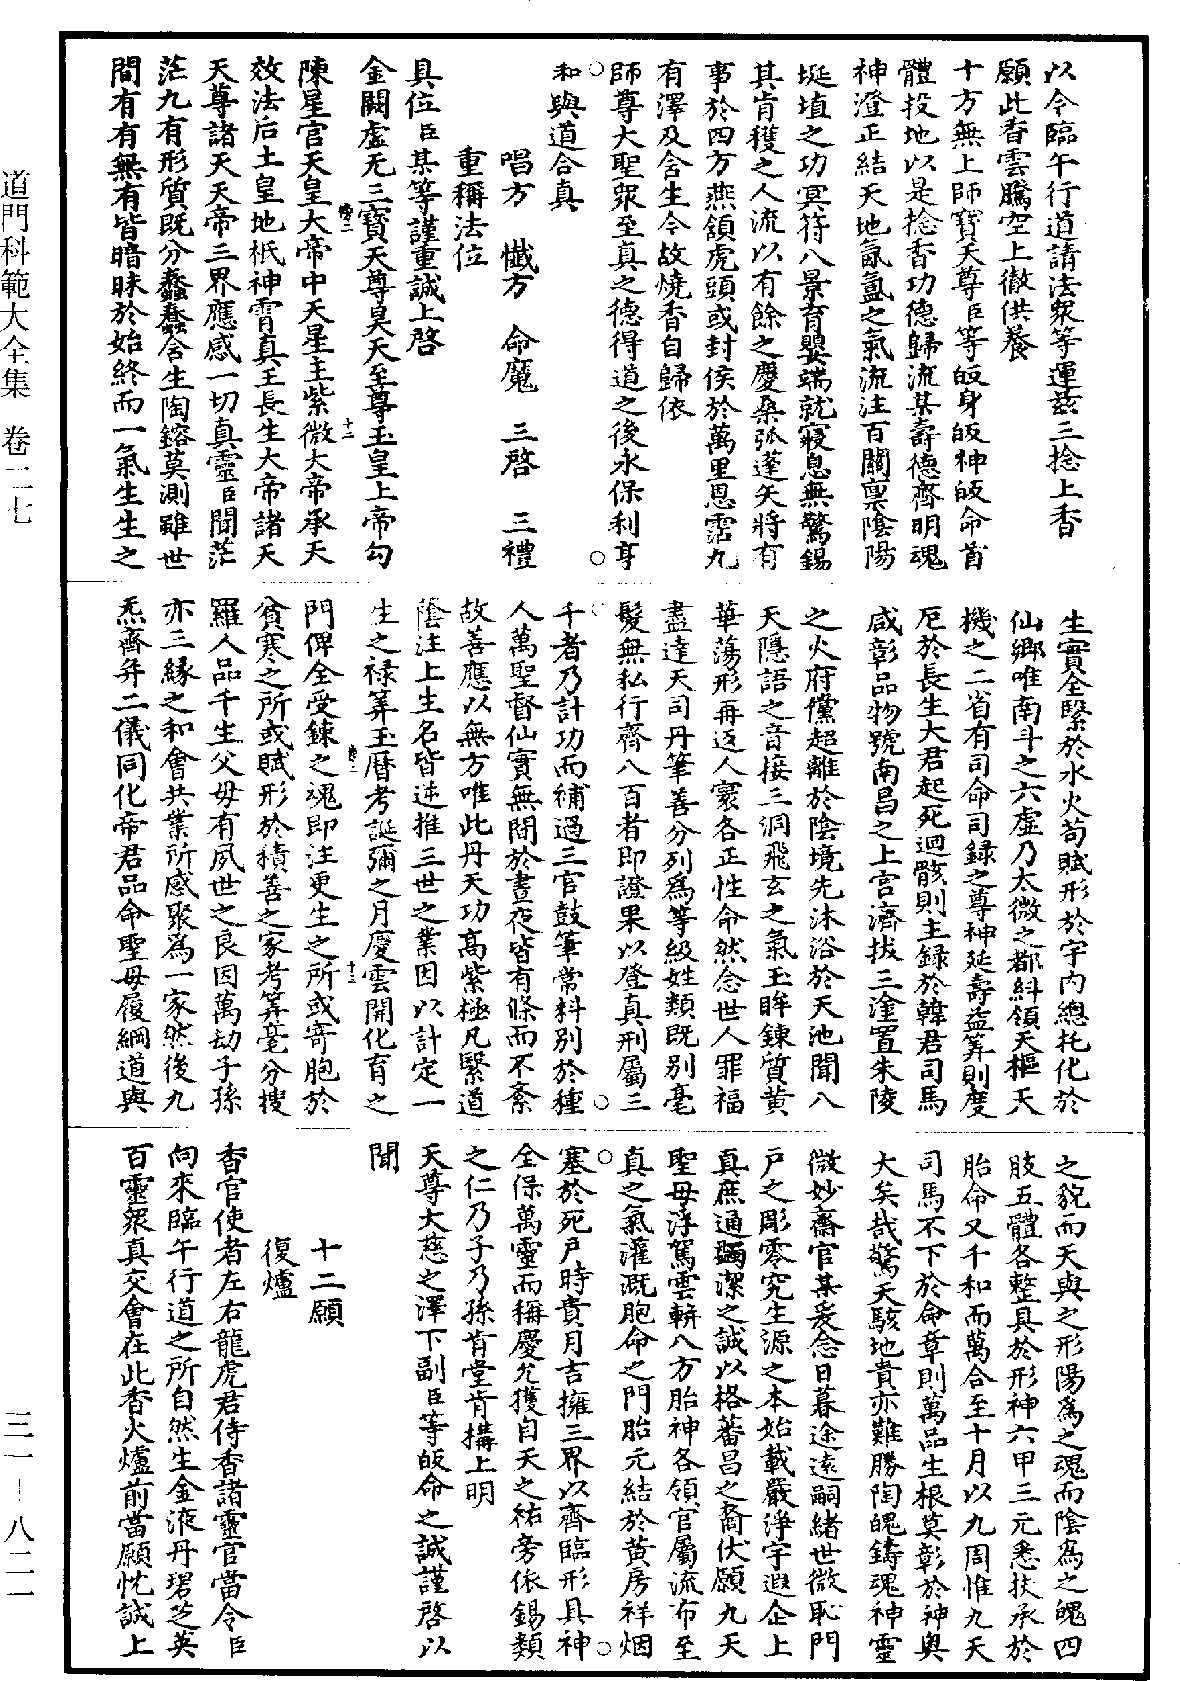 以今臨午行道請法衆等運茲三捻上香
願此香雲騰空上徹供養
十方無上師寶天尊臣等皈身皈神皈命首
體投地以是捻香功德歸流某壽德齊明魂
神澄正結天地氤氲之氣流注百關禀陰陽
埏埴之功冥符八景育嬰端就寢息無驚錫
其肯穫之人流以有餘之慶桑弧蓬矢將有
事於四方燕頷虎頭或封侯於萬里恩霑九
有澤及含生今故燒香自歸依
師尊大聖衆至真之德得道之後永保利亨
和與道合真
唱方　懺方　命魔　三啓　三禮
重稱法位
具位臣某等謹重誠上啓
金闕虛无三寶天尊昊天至尊玉皇上帝勾
陳星宮天皇大帝中天星主紫微大帝承天
效法后土皇地衹神霄真王長生大帝諸天
天尊諸天天帝三界應感一切真靈臣聞茫
茫九有形質既分蠢蠢含生陶鎔莫測雖世
間有有無有皆暗昧於始終而一氣生生之
生實全繫於水火苟賦形於宇内總托化於
仙鄉唯南斗之六虛乃太微之都糾領天樞天
機之二省有司命司録之尊神延壽益筭則度
厄於長生大君起死迴骸則主録於韓君司馬
咸彰品物號南昌之上宫濟拔三塗置朱陵
之火府儻超離於陰境先沐浴於天池聞八
天隱語之音接三洞飛玄之氣玉眸鍊質黄
華蕩形再返人寰各正性命然念世人罪福
盡達天司丹筆善分列爲等級姓類既别毫
髮無私行齊八百者即證果以登真刑屬三
千者乃計功而補過三官鼓筆常料别於種
人萬聖督仙實無間於晝夜皆有條而不紊
故善應以無方唯此丹天功高紫極凡繫道
蔭注上生名皆逆推三世之業因以計定一
生之禄筭玉曆考誕彌之月慶雲開化育之
門俾全受鍊之魂即注更生之所或寄胞於
貧寒之所或賦形於積善之家考筭毫分搜
羅人品千生父母有夙世之良因萬劫子孫
亦三緣之和會共業所感聚爲一家然後九
炁齊并二儀同化帝君品命聖母履綱道與
之貌而天與之形陽爲之魂而陰爲之魄四
肢五體各整具於形神六甲三元悉扶承於
胎命又千和而萬合至十月以九周惟九天
司馬不下於命章則萬品生根莫彰於神奥
大矣哉驚天駭地貴亦難勝陶魄鑄魂神靈
微妙齋官某爰念日暮途遠嗣緒世微恥門
户之彫零究生源之本始載嚴淨宇遐企上
真庶通蠲潔之誠以格蕃昌之裔伏願九天
聖母浮駕雲軿八方胎神各領官屬流布至
真之氣灌溉胞命之門胎元結於黄房祥烟
塞於死户時貴月吉擁三界以齊臨形具神
全保萬靈而稱慶允獲自天之祐旁依錫類
之仁乃子乃孫肯堂肯構上明
天尊大慈之澤下副臣等皈命之誠謹啓以
聞
十二願
復爐
香官使者左右龍虎君侍香諸靈官當令臣
向來臨午行道之所自然生金液丹珺芝英
百靈衆真交會在此香火爐前當願忱誠上
道門科範大全集　卷二七
三一－八二一